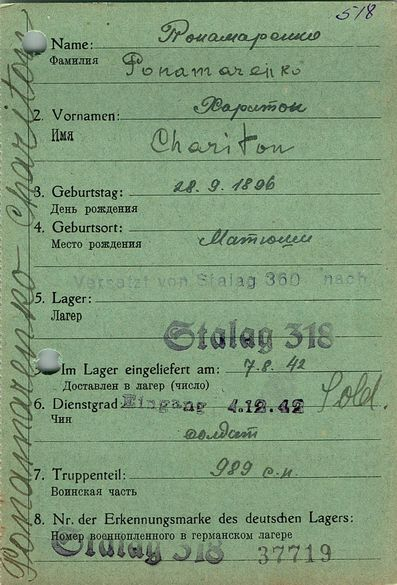 518
Name: Понамаренко
Фамилия
Ponamarenko
2. Vornamen: Харитон
Имя
Chariton
3. Geburtstag: 28. 9. 1896
День рождения
4. Geburtsort:
Место рождения Матюши
Versetzt von Stalag 360 nach
5. Lager:
Лагер
Stalag 318
Im Lager eingeliefert am: 7.8.42
Доставлен в лагер (число)
6. Dienstgrad Eingang 4.12.42 Sold.
Чин
солдат
7. Truppenteil: 989 с.п.
Воинская часть
8. Nr. der Erkennungsmarke des deutschen Lagers:
Номер военнопленного в германском лагере
Stalag 318 37719
Ponamarenko Chariton